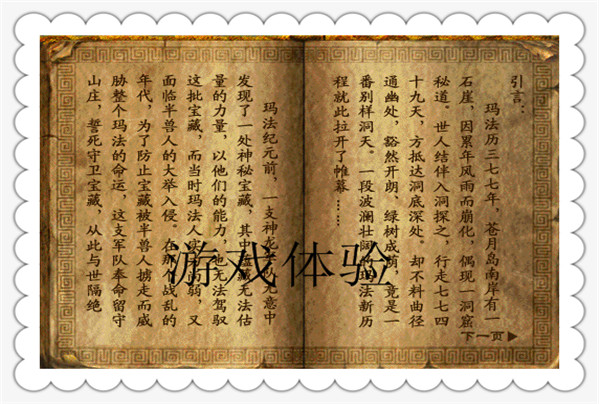 引言：
玛法历三七七年，苍月岛南岸有一
石崖，因累年风雨而崩化，偶现一洞窟
秘道。世人结伴入洞探之，行走七七四
十九天，方抵达洞底深处。却不料曲径
通幽处，豁然开朗、绿树成荫，竟是一
番别样洞天。一段波澜壮阔的玛法新历
程就此拉开了帷幕……
玛法纪元前，一支神龙军队无意中
发现了一处神秘宝藏，其中蕴藏无法估
量的力量，以他们的能力，也无法驾驭
这批宝藏，而当时玛法人实力尚弱，又
面临半兽人的大举入侵。在那个战乱的
年代，为了防止宝藏被半兽人掳走而威
胁整个玛法的命运，这支军队奉命留守
山庄，誓死守卫宝藏，从此与世隔绝
下一页
游戏体验